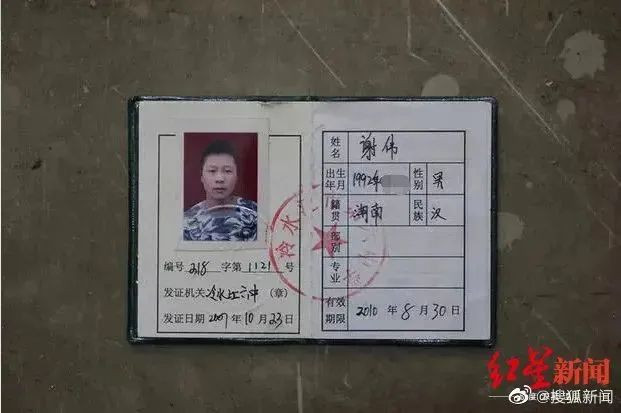 编号 218 字第 1121 号
发证机关 冷水江六中 (章)
发证日期 2007 年 10 月 23 日
姓名 谢伟
出生年月 1992年
性别 男
籍贯 湖南
民族 汉
部别
专业
有效期限 2010 年 8 月 30 日
冷水
红星新闻
@搜狐新闻